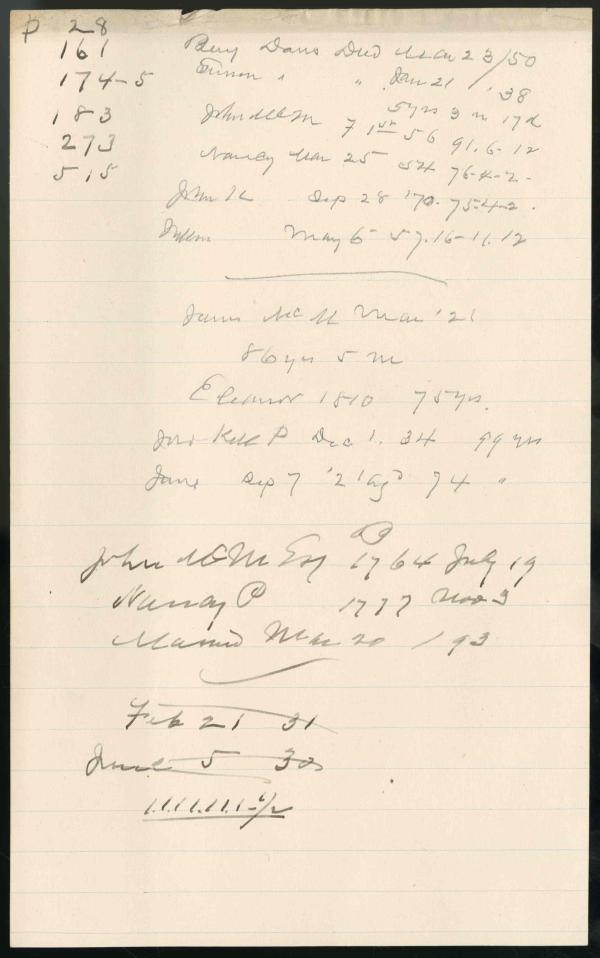 P 28
161
174-5
183
273
515
Benj Davis Died Mar 23/50
" " Jan 21 '38
5 yrs 3 m 17 d
John McM 7 1st 56 91.6.12
Nancy Mar 25 54 76-4-2-
John K Sep 28 '70. 75-4-2.
May 6 57. 16-11.12
James McM Mar '21
86 yrs 5 m
Eleanor 1810 75 yrs.
Jno P Dec 1. 34 99 yrs
Jane Sep 7 '21 Agd 74 "
B
John McM Esq 1764 July 19
Nancy P 1777 Nov 3
Married Mar 20 / 93
Feb 21 31
June 5 30